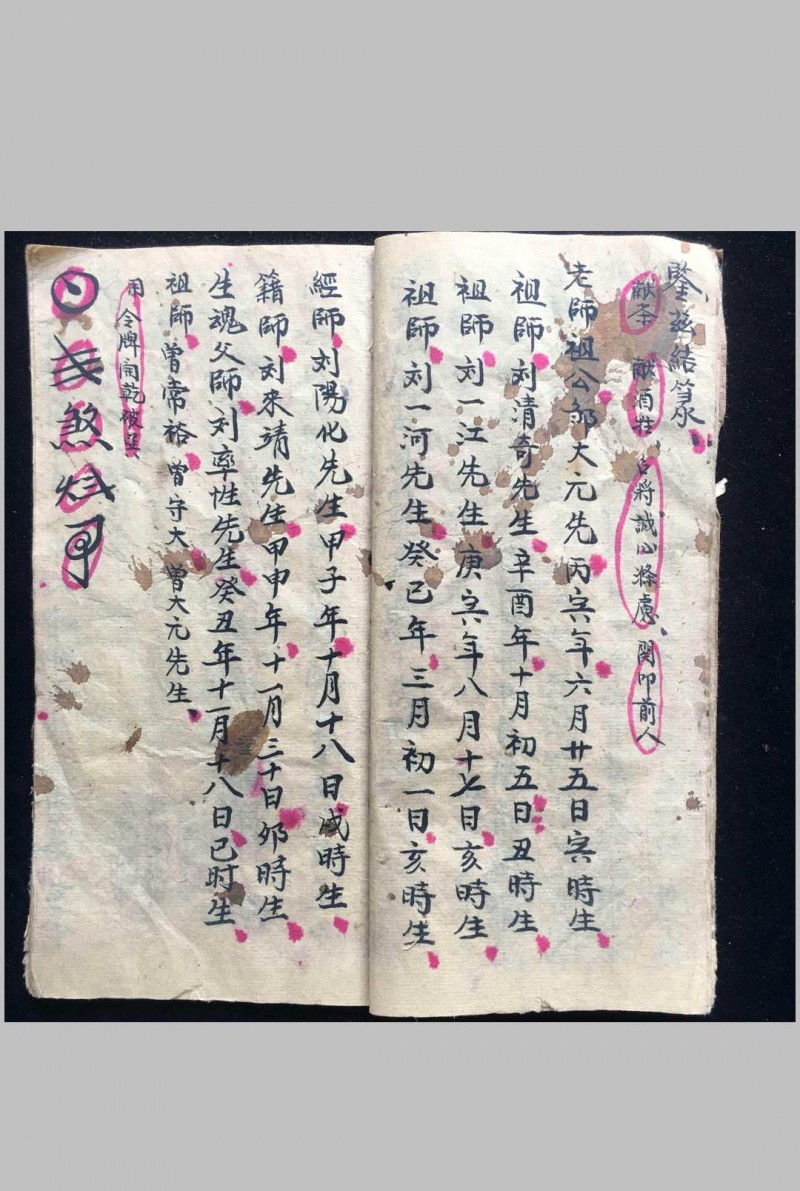 鑒茲結篆
献茶 献酒 將誠心滌慮 関叩前人
老師祖公郭大元先丙寅年六月廿五日寅時生
祖師刘清奇先生辛酉年十月初五日丑時生
祖師刘一江先生庚寅年八月十七日亥時生
祖師刘一河先生癸巳年三月初一日亥時生
經師刘陽化先生甲子年十月十八日戍時生
籍師刘來靖先生甲申年十一月三十日夘時生
生魂父師刘率性先生癸丑年十一月十八日巳时生
祖師曾常裕曾守大曾大元先生
用令牌
煞